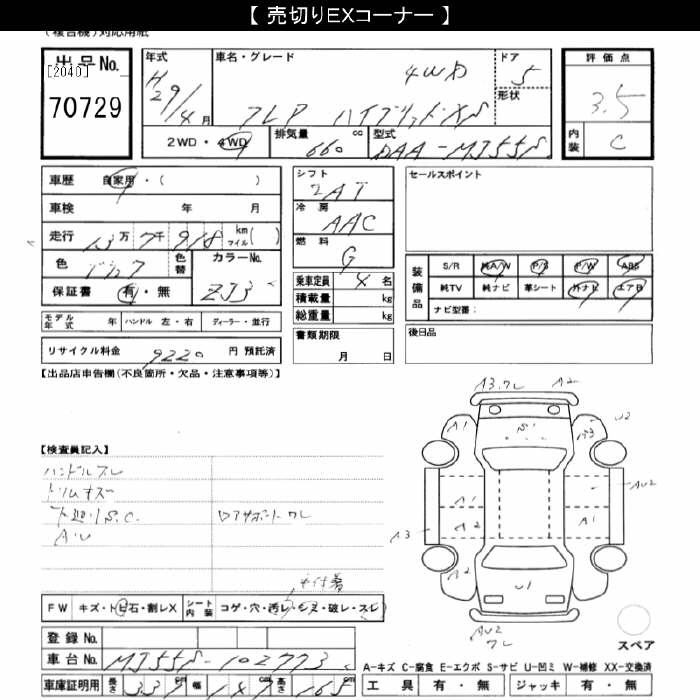 【 売切りEXコーナー 】
(複合機)対応用紙
出品No.
[2040]
70729
年式
H29/4月
車名・グレード
4WD
フレア ハイブリッドXS
ドア
5
形状
2WD・4WD
排気量
660 cc
型式
DAA-MJ55S
評価点
3.5
内装
C
車歴 自家用・( )
車検 年 月
走行 13万7千918 km マイル( )
色
色替
カラーNo.
ZJ3
保証書 有・無
モデル年式 年 ハンドル 左・右 ディーラー・並行
リサイクル料金 9220 円 預託済
シフト
IAT
冷房
AAC
燃料
G
乗車定員 4 名
積載量 kg
総重量 kg
書類期限
月 日
セールスポイント
装備品
S/R 純A/W P/S P/W ABS
純TV 純ナビ 革シート 外ナビ エアB
ナビ型番:
後日品
【出品店申告欄(不良箇所・欠品・注意事項等)】
【検査員記入】
ハンドルスレ
トリムキズ
下廻りS.C.
A・U
ロアサポートワレ
FW キズ・トビ石・割レX
シート内装 コゲ・穴・汚レ・シミ・破レ・スレ
登録No.
車台No. MJ55S-102773
車庫証明用 長さ 339 cm 幅 147 cm 高さ 165 cm
A3.ワレ A2
A1 S1 U2
A3
A1 AU2
A3 A2 A1
A2 U1
AU2
ワレ
スペア
A-キズ C-腐食 E-エクボ S-サビ U-凹ミ W-補修 XX-交換済
工具 有・無 ジャッキ 有・無